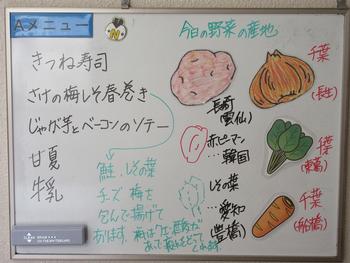 Aメニュー
きつね寿司
さけの梅しそ春巻き
じゃが芋とベーコンのソテー
甘夏
牛乳
鮭、しその葉
チーズ 梅を
包んで揚げて
あります。梅は
今日の野菜の産地
長崎
(雲仙)
千葉
(長生)
赤ピーマン
…韓国
千葉
しその葉
…愛知
豊橋
千葉
(船橋)